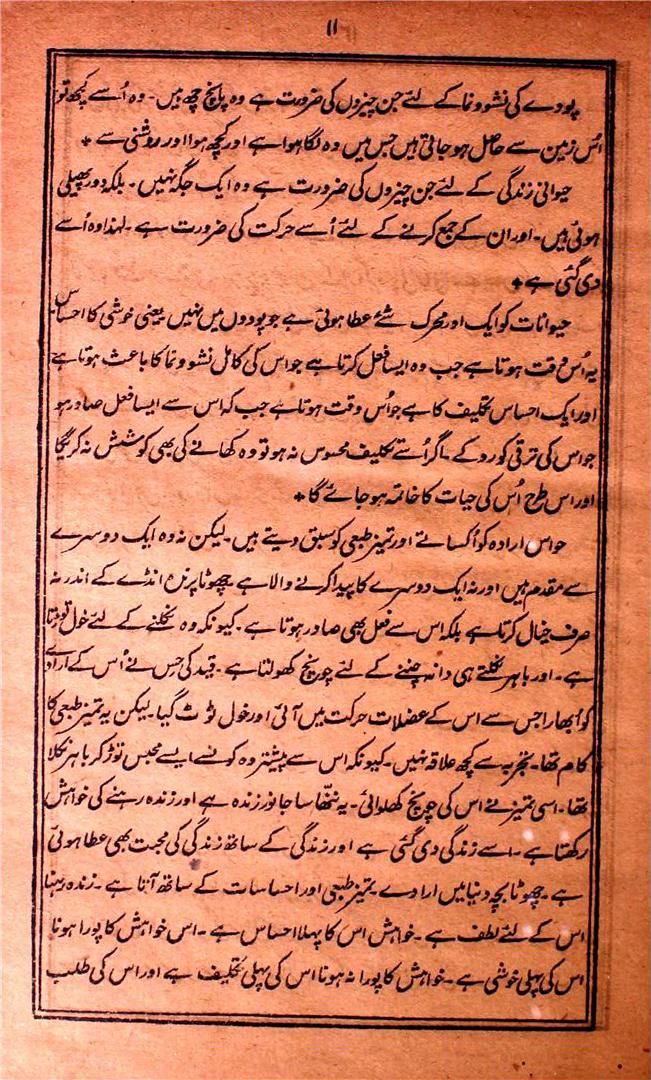 ۱۱
پودے کی نشوونما کے لئے جن چیزوں کی ضرورت ہے وہ پانچ چھ ہیں۔ وہ اُسے کچھ تو
اُس زمین سے حاصل ہو جاتی ہیں جس میں وہ لگا ہوا ہے اور کچھ ہوا اور روشنی سے *
حیوانی زندگی کے لئے جن چیزوں کی ضرورت ہے وہ ایک جگہ نہیں۔ بلکہ دور پھیلی
ہوئی ہیں۔ اور ان کے جمع کرنے کے لئے اُسے حرکت کی ضرورت ہے۔ لہٰذا وہ اُسے
دی گئی ہے *
حیوانات کو ایک اور محرک شئے عطا ہوئی ہے جو پودوں میں نہیں یعنی خوشی کا احساس۔
یہ اُس وقت ہوتا ہے جب وہ ایسا فعل کرتا ہے جو اس کی کامل نشوونما کا باعث ہوتا ہے
اور ایک احساس تکلیف کا ہے جو اُس وقت ہوتا ہے جب کہ اس سے ایسا فعل صادر ہو
جو اس کی ترقی کو روکے۔ اگر اُسے تکلیف محسوس نہ ہو تو وہ کھانے کی بھی کوشش نہ کریگا
اور اس طرح اُس کی حیات کا خاتمہ ہو جائے گا *
حواس ارادہ کو اُکساتے اور تمیز طبعی کو سبق دیتے ہیں۔ لیکن نہ وہ ایک دوسرے
سے مقدم ہیں اور نہ ایک دوسرے کا پیدا کرنے والا ہے۔ چھوٹا پرندہ انڈے کے اندر نہ
صرف خیال کرتا ہے بلکہ اس سے فعل بھی صادر ہوتا ہے۔ کیونکہ وہ نکلنے کے لئے خول توڑتا
ہے۔ اور باہر نکلتے ہی دانہ چننے کے لئے چونچ کھولتا ہے۔ قید کی حِس نے اُس کے ارادے
کو اُبھارا جس سے اس کے عضلات حرکت میں آئی اور خول ٹوٹ گیا۔ لیکن یہ تمیز طبعی کا
کام تھا۔ تجربہ سے کچھ علاقہ نہیں۔ کیونکہ اس سے پیشتر وہ کونسے ایسے محبس توڑ کر باہر نکلا
تھا۔ اسی تمیز نے اس کی چونچ کھلوائی۔ یہ ننھا سا جانور زندہ ہے اور زندہ رہنے کی خواہش
رکھتا ہے۔ اسے زندگی دی گئی ہے اور زندگی کے ساتھ زندگی کی محبت بھی عطا ہوئی
ہے۔ چھوٹا بچہ دنیا میں ارادے۔ تمیز طبعی اور احساسات کے ساتھ آتا ہے۔ زندہ رہنا
اس کے لئے لطف ہے۔ خواہش اس کا پہلا احساس ہے۔ اس خواہش کا پورا ہونا
اس کی پہلی خوشی ہے۔ خواہش کا پورا نہ ہونا اس کی پہلی تکلیف ہے اور اس کی طلب